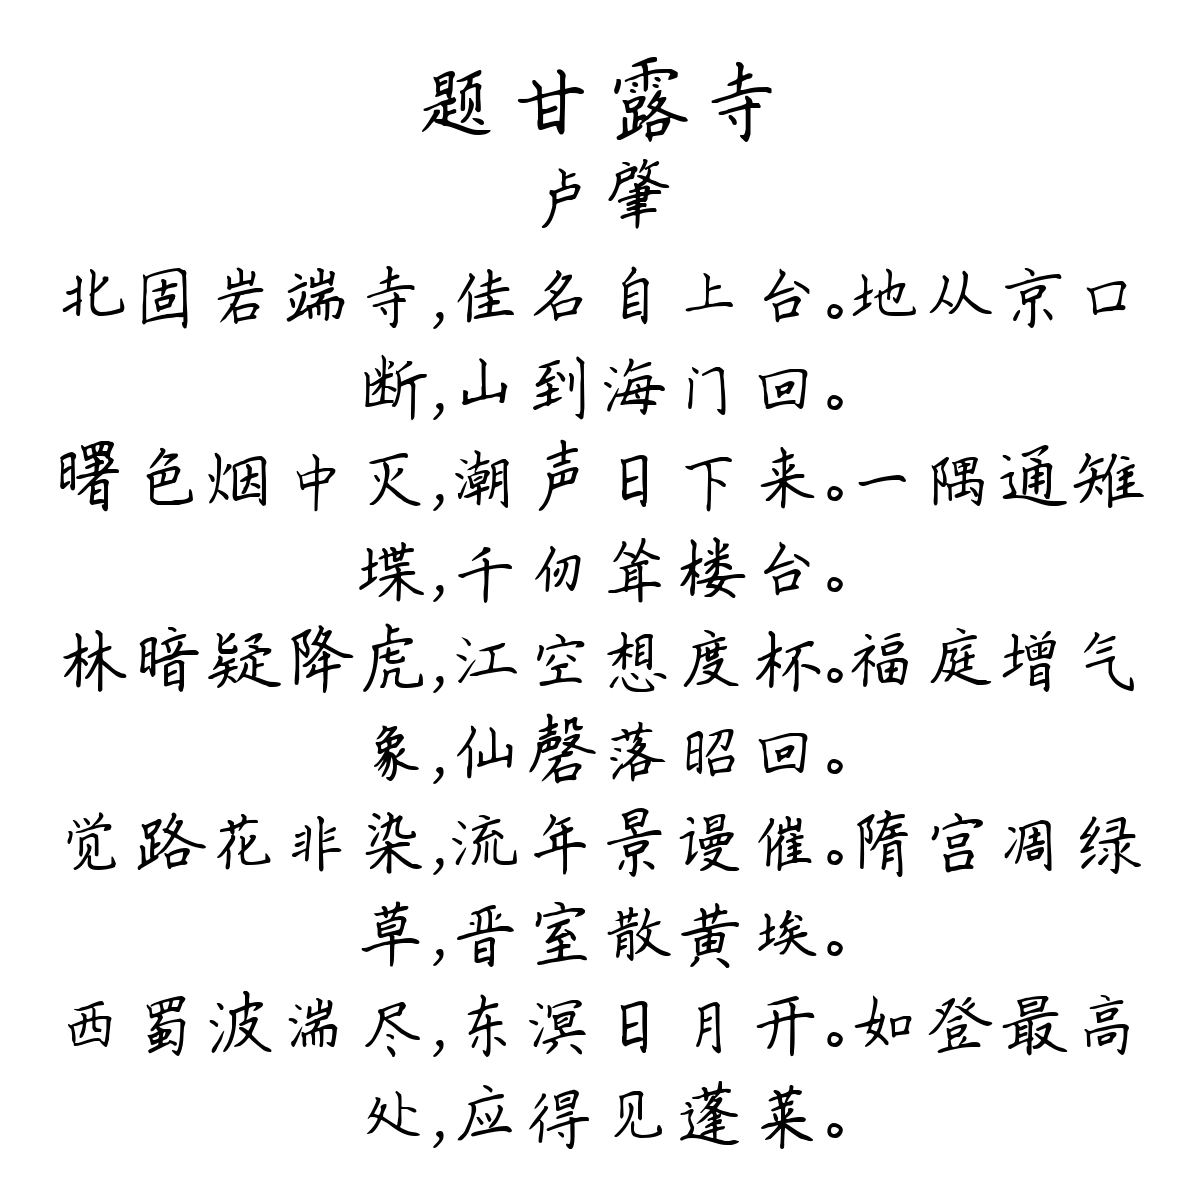 题甘露寺
卢肇
北固岩端寺,佳名自上台。地从京口
断,山到海门回。
曙色烟中灭,潮声日下来。一隅通雉
堞,千仞耸楼台。
林暗疑降虎,江空想度杯。福庭增气
象,仙磬落昭回。
觉路花非染,流年景谩催。隋宫凋绿
草,晋室散黄埃。
西蜀波湍尽,东溟日月开。如登最高
处,应得见蓬莱。